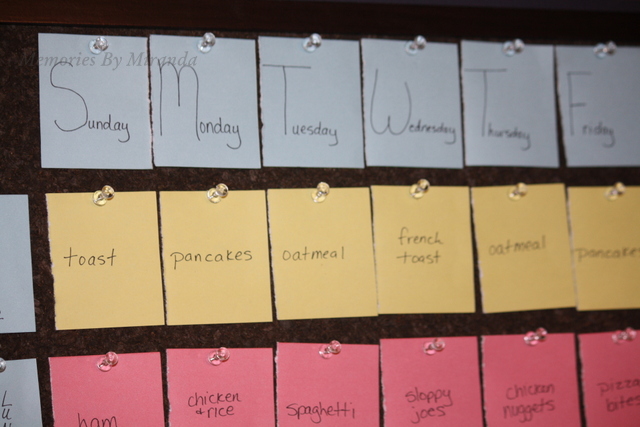 Memories By Miranda
Sunday Monday Tuesday Wednesday Thursday Friday
toast pancakes oatmeal french toast oatmeal pancakes
ham chicken & rice spaghetti sloppy joes chicken nuggets pizza bites